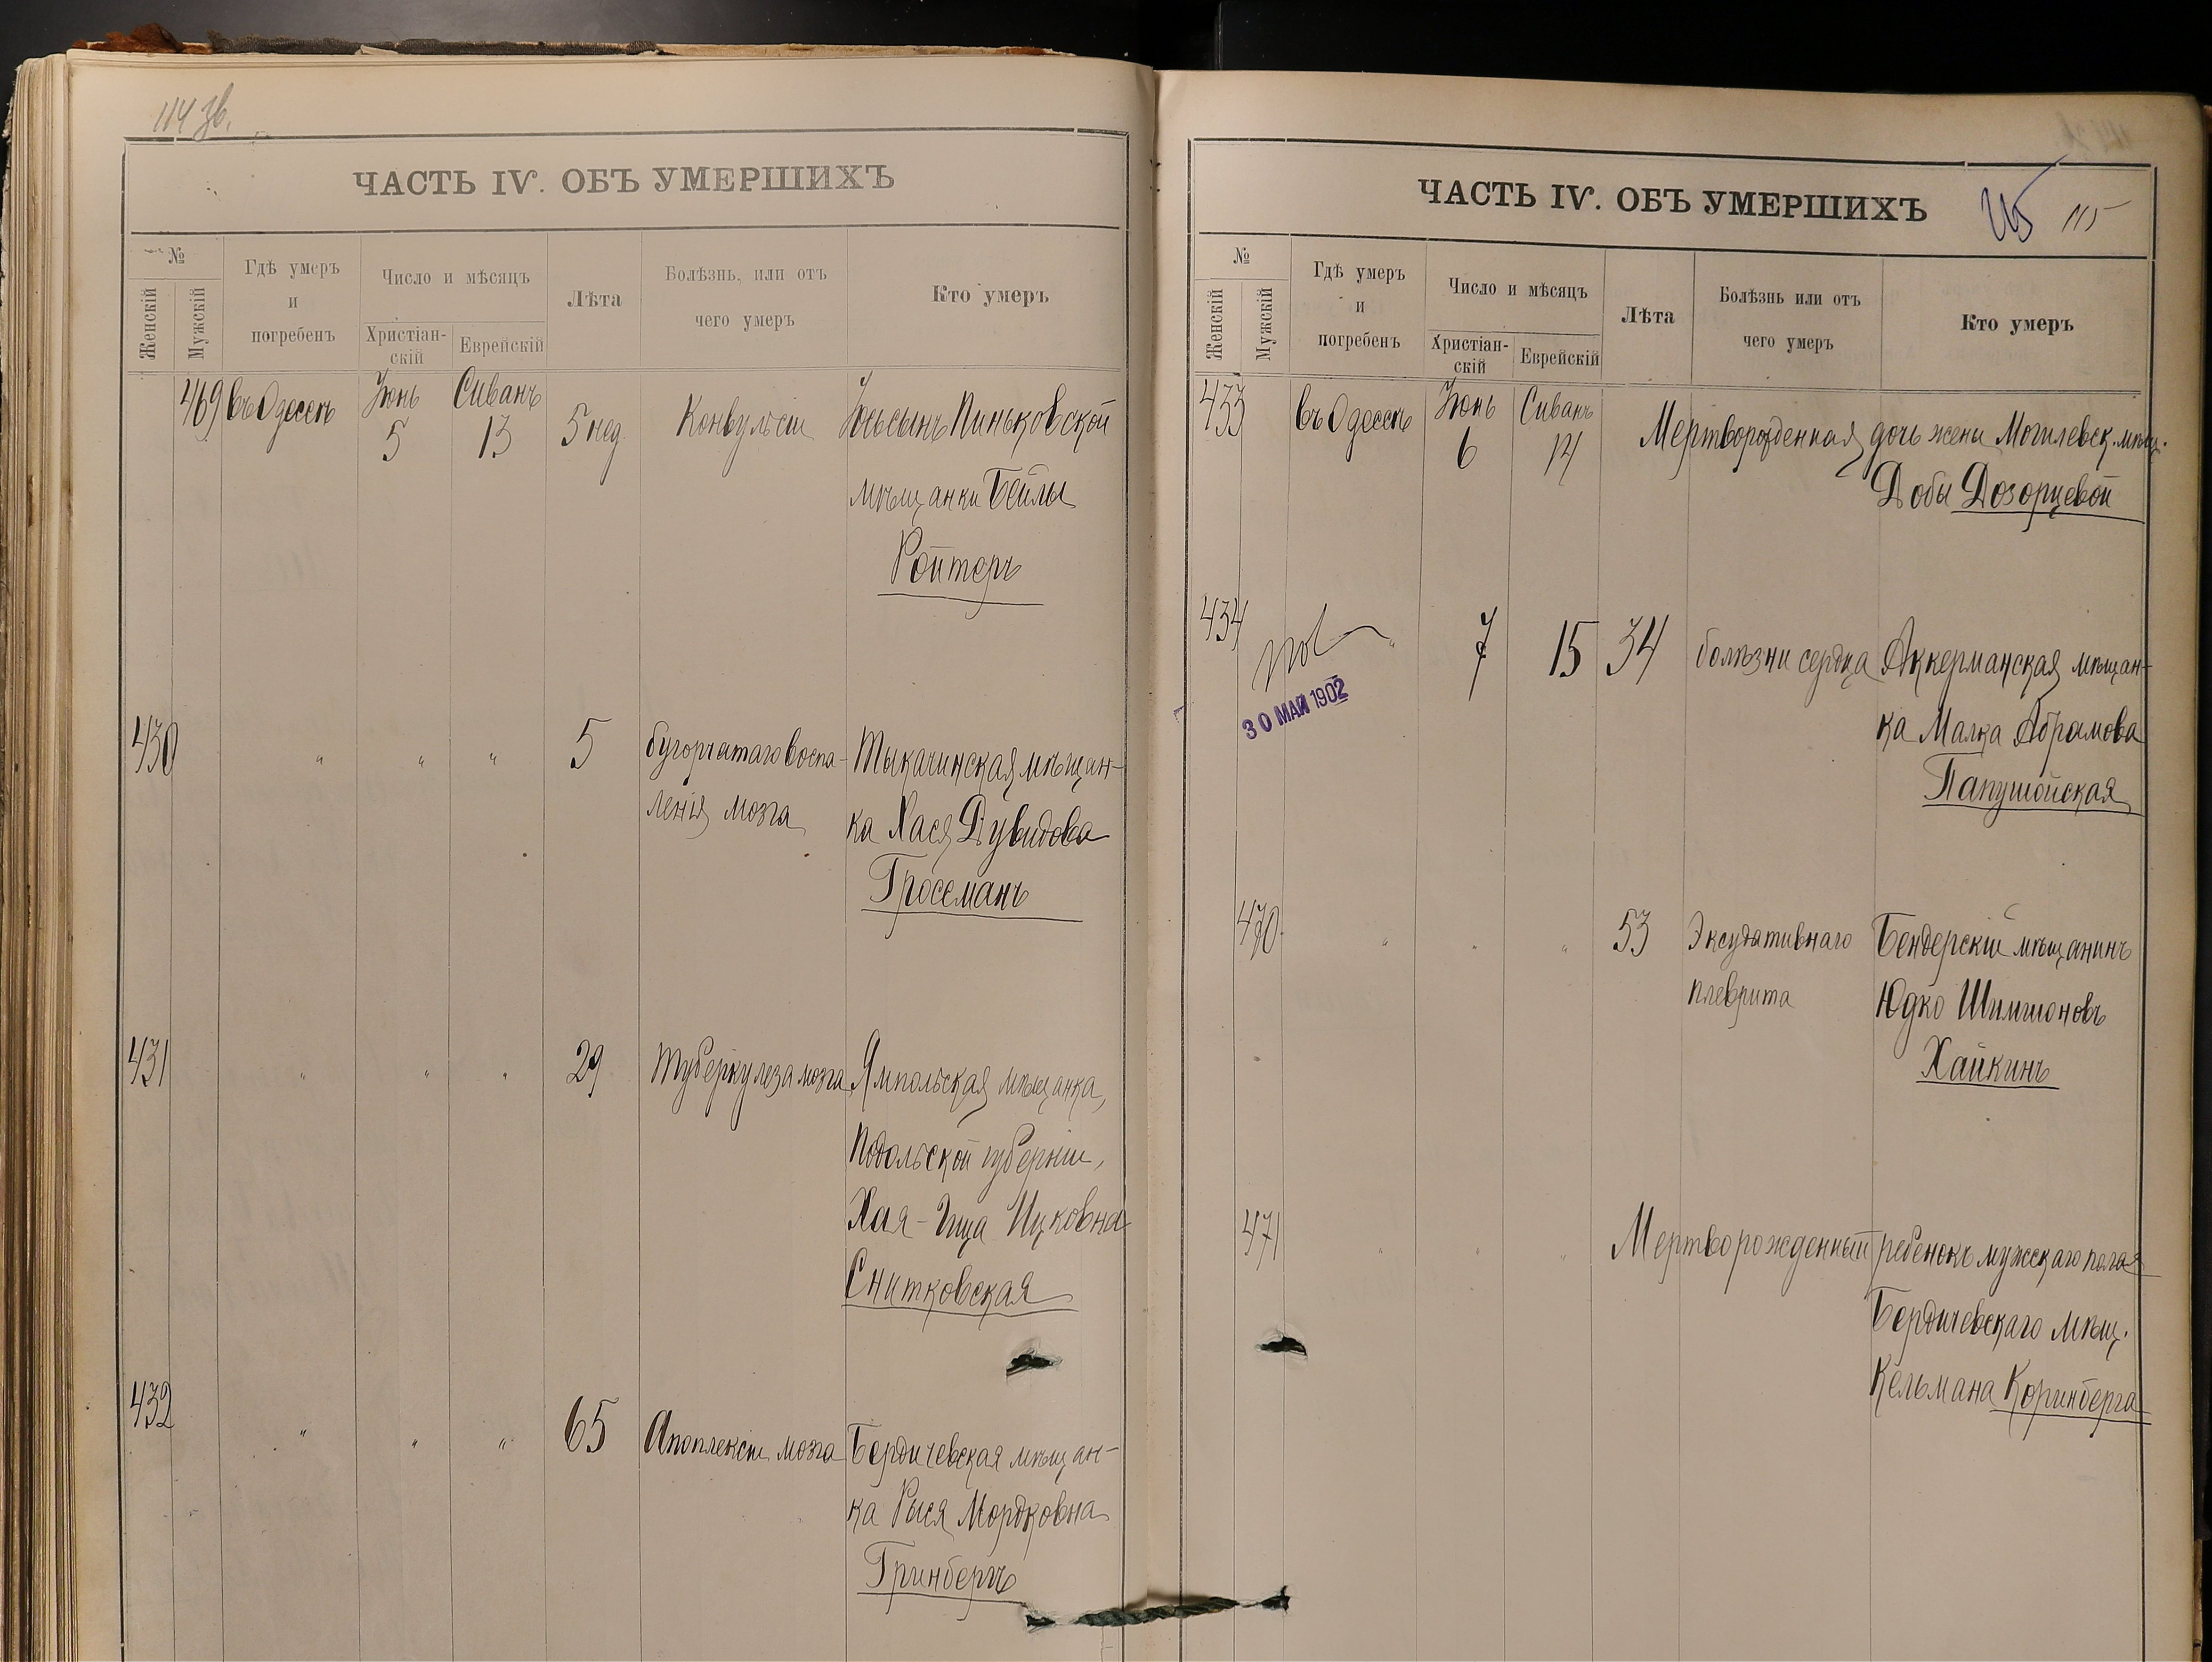 114 зв.
ЧАСТЬ IV. ОБЪ УМЕРШИХЪ
№
Женскій
Мужскій
Гдѣ умеръ
и
погребенъ
Число и мѣсяцъ
Христіан-
скій
Еврейскій
Лѣта
Болѣзнь, или отъ
чего умеръ
Кто умеръ
469 въ Одессѣ Іюнь 5 Сиванъ 13 5 нед. Конвульсіи сынъ Пиньковской
мѣщанки Бейлы
Ройтеръ
430 " " " 5 бугорчатаго воспа- Тыкачинская мѣщан-
ленія мозга ка Хася Дувидова
Гросеманъ
431 " " " 29 Туберкулеза мозга Ямпольская мѣщанка,
Подольской губерніи,
Хая-Гица Ицковна
Снитковская
432 " " " 65 Апоплексіи мозга Бердичевская мѣщан-
ка Рыся Мордковна
Гринбергъ
ЧАСТЬ IV. ОБЪ УМЕРШИХЪ
115 115
№
Женскій
Мужскій
Гдѣ умеръ
и
погребенъ
Число и мѣсяцъ
Христіан-
скій
Еврейскій
Лѣта
Болѣзнь или отъ
чего умеръ
Кто умеръ
433 въ Одессѣ Іюнь 6 Сиванъ 14 Мертворожденная дочь жены Могилевск. мѣщ.
Добы Дозорцевой
434 " 7 15 34 болѣзни сердца Аккерманская мѣщан-
30 МАЙ 1902
ка Малка Абрамова
Папушойская
470 " " " 53 Эксудативнаго Бендерскій мѣщанинъ
плеврита Юдко Шимшоновъ
Хайкинъ
471 " " " Мертворожденный ребенокъ мужскаго пола
Бердичевскаго мѣщ.
Кельмана Коринберга